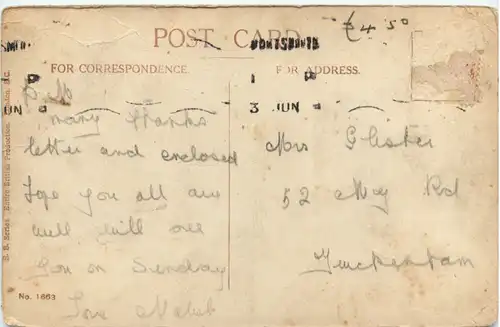 £4.50
POST CARD
PORTSMOUTH
FOR CORRESPONDENCE.
FOR ADDRESS.
1 P
3 JUN
D M
many thanks
letter and enclosed
hope you all are
well will see
you on Sunday
love
Mrs
52 May Rd
Twickenham
No. 1663